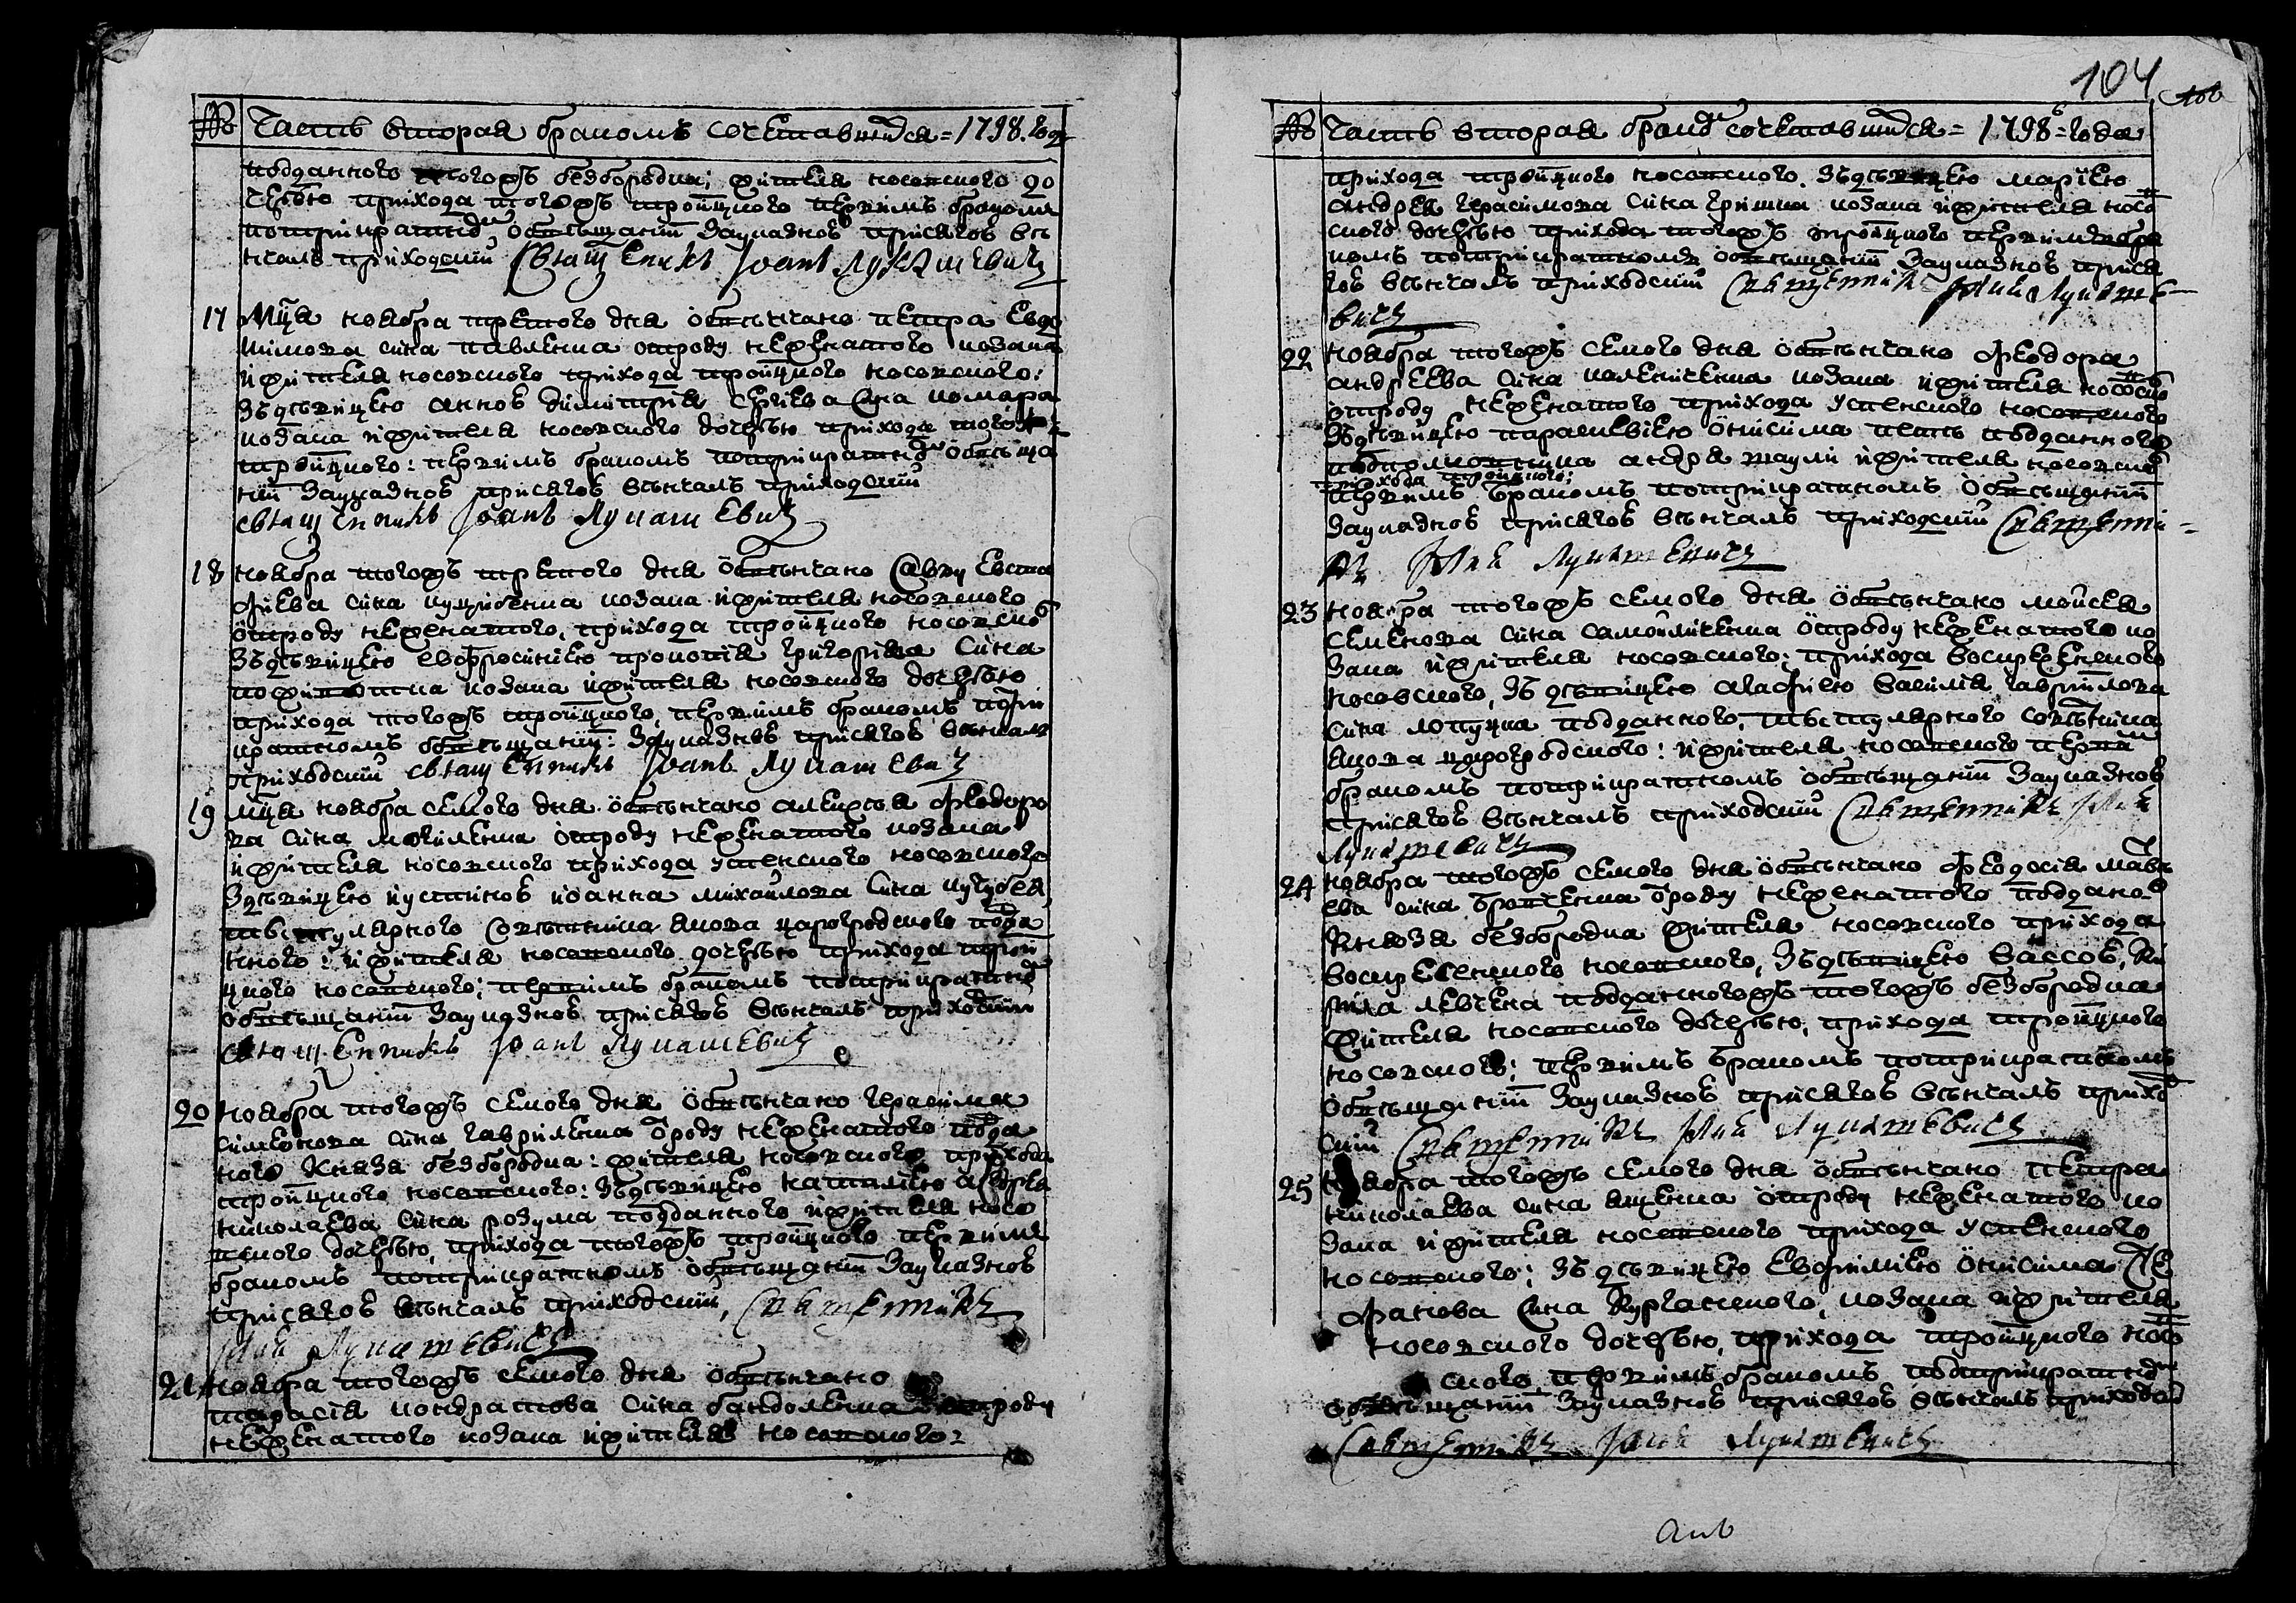 № Часть вторая браком сочетавшихся = 1798. года
подданного тогожъ безбородка; жителя носовского до
черъю прихода тогожъ троицкого первимъ браком
потрикратном обисканіи За указною присягою вѣ
нчалъ приходскій Священникъ Іоанъ Лукашевичъ
17 Мца ноября третого дня обвѣнчано петра Евдо
кимова сина павленка отроду неженатого козака
и жителя носовского прихода троицкого носовского:
Зъ дѣвицею анною димитрія Сергіева сина комара
козака и жителя носовского дочерью прихода тогожъ
троицкого: первимъ бракомъ потрикратном обисканіи
За указною присягою вѣнчалъ приходскій
священникъ Іоанъ Лукашевичъ
18 ноября тогожъ третого дня обвѣнчано Савву Евста
фиева сина куцубенка козака и жителя носовского
отроду неженатого, прихода троицкого носовского
Зъ дѣвицею евфросиніею прокопія григоріева Сина
козака и жителя носовского дочерью
прихода тогожъ троицкого, первимъ бракомъ потри
кратномъ обисканіи: За указною присягою вѣнчалъ
приходскій священникъ Іоанъ Лукашевичъ
19 мца ноября семого дня обвѣнчано алексѣя Феодоро
ва сина могиленка отроду неженатого козака
и жителя носовского прихода успенского носовского
Здѣвицею иустиною иоанна михаилова Сина кучубея,
титулярного Совѣтника якова царогродского подда
нного: и жителя носовского дочерью прихода трои
цкого носовского; первимъ бракомъ потрикратном
обисканіи За указною присягою вѣнчалъ приходскій
священникъ Іоанъ Лукашевичъ
20 Ноября тогожъ семого дня обвѣнчано герасима
Симеонова сина гавриленка отроду неженатого подда
ного Князя безбородка: жителя носовского прихода
троицкого носовского: Зъ дѣвицею наталіею андрея
николаева Сина розума подданного и жителя носо
вского дочерью, прихода тогожъ троицкого первимъ
бракомъ потрикратномъ обисканіи За указною
присягою вѣнчалъ приходскій, Священникъ
Іоанъ Лукашевичъ
21 ноября тогожъ семого дня обвѣнчано
тарасія кондратова Сина бандоленка отроду
неженатого козака и жителя носовского:
104
№ Часть вторая браком сочетавшихся = 1798 = года
прихода троицкого носовского. Зъ дѣвицею маріею
андрея герасимова Сина гришка козака и жителя носов
ского дочерью прихода тогожъ троицкого первимъ бра
комъ потрикратномъ обисканіи За указною прися
гою вѣнчалъ приходскій Священникъ Іоанъ Лукаше-
вичъ
22 Ноября тогожъ семого дня обвѣнчано Феодора
андреева Сина коленченка козака и жителя носовского
отроду неженатого прихода успенского носовского
Зъ дѣвицею параскевіею онисима петь подданного
подполковника андрея и жителя носовского
прихода троицкого:
первимъ бракомъ потрикратномъ обисканіи
За указною присягою вѣнчалъ приходскій Священни=
къ Іоанъ Лукашевичъ
23 Ноября тогожъ семого дня обвѣнчано моисея
Семенова Сина Самойличенка отроду неженатого ко
зака и жителя носовского; прихода воскресенского
носовского, Зъ дѣвицею агафиею василія гавриилова
Сина лопуцка подданного, титулярного совѣтника
якова царогродского: и жителя носовского первим
бракомъ потрикратномъ обисканіи За указною
присягою вѣнчалъ приходскій Священникъ Іоанъ
Лукашевичъ
24 ноября тогожъ семого дня обвѣнчано Феодосія матвѣ
ева сина отроду неженатого подданого
Князя безбородка жителя носовского прихода
воскресенского носовского, Зъ дѣвицею вассою, Ки
рила левчена подданногожъ тогожъ безбородка
жителя носовского дочерью, прихода троицкого
носовского; первимъ бракомъ потрикратномъ
обисканіи За указною присягою вѣнчалъ прихо
дскій Священникъ Іоанъ Лукашевичъ
25 Ноября тогожъ семого дня обвѣнчано петра
николаева Сина ященка отроду неженатого ко
зака и жителя носовского прихода успенского
носовского; Зъ дѣвицею Евфиміею онисима Сте
фанова Сина козака и жителя
носовского дочерью, прихода троицкого носов
ского первимъ бракомъ потрикратном
обисканіи За указною присягою вѣнчалъ приходскій
Священникъ Іоанъ Лукашевичъ